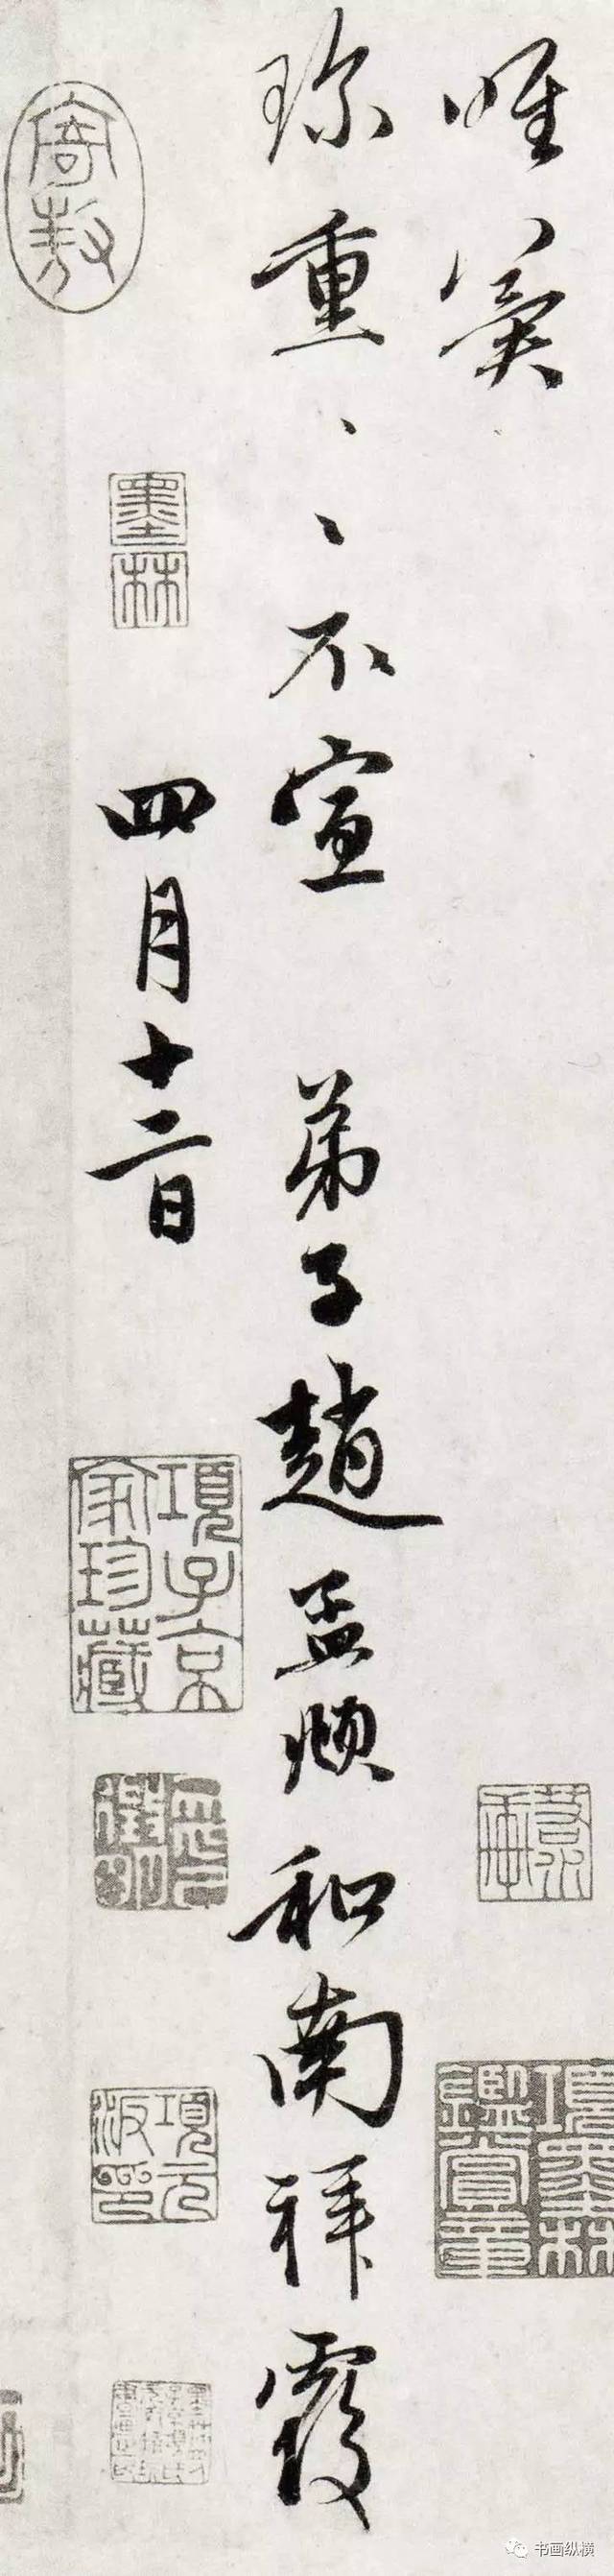 唯冀
珎重〻〻不宣 弟子趙孟頫和南拜覆
四月十二日
寄敖
墨林
項子京家珍藏
項元汴印
項墨林鑑賞章
书画纵横